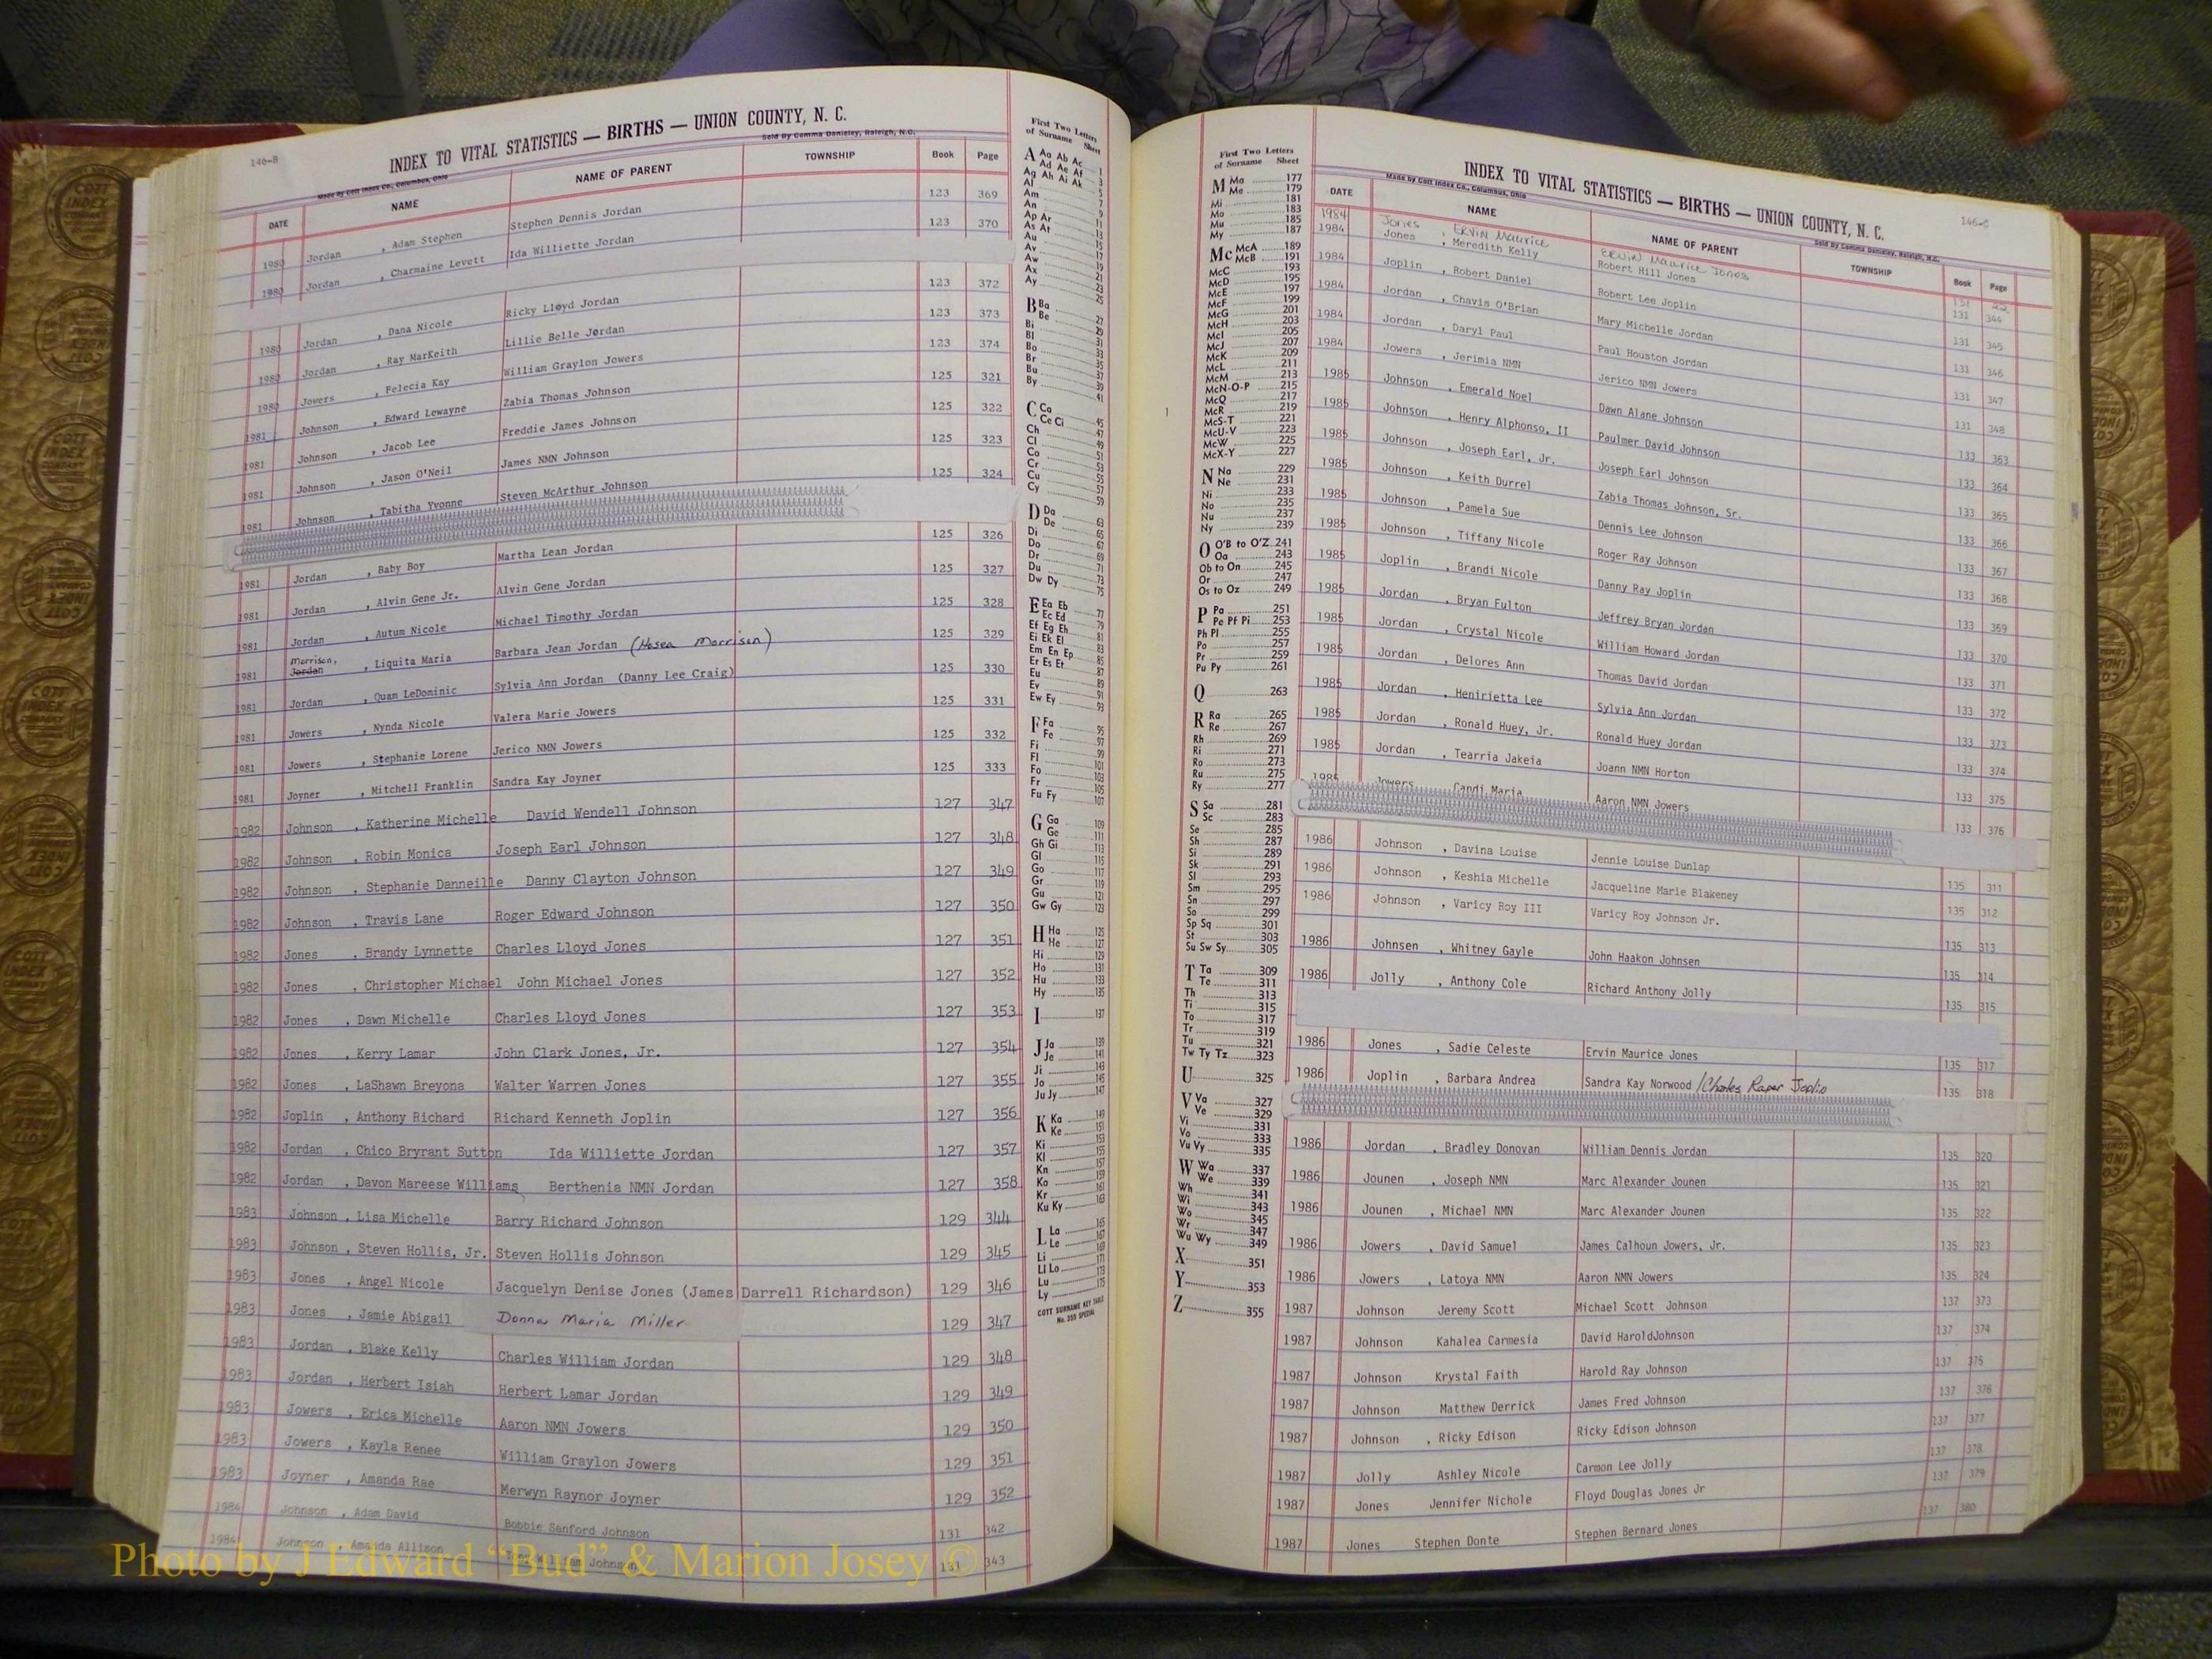 146-B
INDEX TO VITAL STATISTICS — BIRTHS — UNION COUNTY, N. C.
Made by Cott Index Co., Columbus, Ohio
Sold By Comma Danieley, Raleigh, N.C.
DATE NAME NAME OF PARENT TOWNSHIP Book Page
1980 Jordan , Adam Stephen Stephen Dennis Jordan 123 369
1980 Jordan , Charmaine Levett Ida Williette Jordan 123 370
1980 Jordan , Dana Nicole Ricky Lloyd Jordan 123 372
1980 Jordan , Ray MarKeith Lillie Belle Jordan 123 373
1980 Jowers , Felecia Kay William Graylon Jowers 123 374
1981 Johnson , Edward Lewayne Zabia Thomas Johnson 125 321
1981 Johnson , Jacob Lee Freddie James Johnson 125 322
1981 Johnson , Jason O'Neil James NMN Johnson 125 323
1981 Johnson , Tabitha Yvonne Steven McArthur Johnson 125 324
1981 Jordan , Baby Boy Martha Lean Jordan 125 326
1981 Jordan , Alvin Gene Jr. Alvin Gene Jordan 125 327
1981 Jordan , Autum Nicole Michael Timothy Jordan 125 328
1981 Morrison, Jordan , Liquita Maria Barbara Jean Jordan (Hosea Morrison) 125 329
1981 Jordan , Quam LeDominic Sylvia Ann Jordan (Danny Lee Craig) 125 330
1981 Jowers , Nynda Nicole Valera Marie Jowers 125 331
1981 Jowers , Stephanie Lorene Jerico NMN Jowers 125 332
1981 Joyner , Mitchell Franklin Sandra Kay Joyner 125 333
1982 Johnson , Katherine Michelle David Wendell Johnson 127 347
1982 Johnson , Robin Monica Joseph Earl Johnson 127 348
1982 Johnson , Stephanie Danneille Danny Clayton Johnson 127 349
1982 Johnson , Travis Lane Roger Edward Johnson 127 350
1982 Jones , Brandy Lynnette Charles Lloyd Jones 127 351
1982 Jones , Christopher Michael John Michael Jones 127 352
1982 Jones , Dawn Michelle Charles Lloyd Jones 127 353
1982 Jones , Kerry Lamar John Clark Jones, Jr. 127 354
1982 Jones , LaShawn Breyona Walter Warren Jones 127 355
1982 Joplin , Anthony Richard Richard Kenneth Joplin 127 356
1982 Jordan , Chico Bryrant Sutton Ida Williette Jordan 127 357
1982 Jordan , Davon Mareese Williams Berthenia NMN Jordan 127 358
1983 Johnson , Lisa Michelle Barry Richard Johnson 129 344
1983 Johnson , Steven Hollis, Jr. Steven Hollis Johnson 129 345
1983 Jones , Angel Nicole Jacquelyn Denise Jones (James Darrell Richardson) 129 346
1983 Jones , Jamie Abigail Donna Maria Miller 129 347
1983 Jordan , Blake Kelly Charles William Jordan 129 348
1983 Jordan , Herbert Isiah Herbert Lamar Jordan 129 349
1983 Jowers , Erica Michelle Aaron NMN Jowers 129 350
1983 Jowers , Kayla Renee William Graylon Jowers 129 351
1983 Joyner , Amanda Rae Merwyn Raynor Joyner 129 352
1984 Johnson , Adam David Bobbie Sanford Johnson 131 342
1984 Johnson , Amanda Allison Tony William Johnson 131 343
First Two Letters of Surname Sheet
A Aa Ab Ac 1
Ad Ae Af 3
Ag Ah Ai Ak 5
Al 7
Am 9
An 11
Ap Ar 13
As At 15
Au 17
Av 19
Aw 21
Ax 23
Ay 25
B Ba 27
Be 29
Bi 31
Bl 33
Bo 35
Br 37
Bu 39
By 41
C Ca 45
Ce Ci 47
Ch 49
Cl 51
Co 53
Cr 55
Cu 57
Cy 59
D Da 63
De 65
Di 67
Do 69
Dr 71
Du 73
Dw Dy 75
E Ea Eb 77
Ec Ed 79
Ef Eg Eh 81
Ei Ek El 83
Em En Ep 85
Er Es Et 87
Eu 89
Ev 91
Ew Ey 93
F Fa 95
Fe 97
Fi 99
Fl 101
Fo 103
Fr 105
Fu Fy 107
G Ga 109
Ge 111
Gh Gi 113
Gl 115
Go 117
Gr 119
Gu 121
Gw Gy 123
H Ha 125
He 127
Hi 129
Ho 131
Hu 133
Hy 135
I 137
J Ja 139
Je 141
Ji 143
Jo 145
Ju Jy 147
K Ka 149
Ke 151
Ki 153
Kl 155
Kn 157
Ko 159
Kr 161
Ku Ky 163
L La 165
Le 167
Li 169
Ll Lo 171
Lu 173
Ly 175
COTT SURNAME KEY TABLE
No. 355 SPECIAL
First Two Letters of Surname Sheet
M Ma 177
Me 179
Mi 181
Mo 183
Mu 185
My 187
Mc McA 189
McB 191
McC 193
McD 195
McE 197
McF 199
McG 201
McH 203
McI 205
McJ 207
McK 209
McL 211
McM 213
McN-O-P 215
McQ 217
McR 219
McS-T 221
McU-V 223
McW 225
McX-Y 227
N Na 229
Ne 231
Ni 233
No 235
Nu 237
Ny 239
O O'B to O'Z 241
Oa 243
Ob to On 245
Or 247
Os to Oz 249
P Pa 251
Pe Pf Pi 253
Ph Pl 255
Po 257
Pr 259
Pu Py 261
Q 263
R Ra 265
Re 267
Rh 269
Ri 271
Ro 273
Ru 275
Ry 277
S Sa 281
Sc 283
Se 285
Sh 287
Si 289
Sk 291
Sl 293
Sm 295
Sn 297
So 299
Sp Sq 301
St 303
Su Sw Sy 305
T Ta 309
Te 311
Th 313
Ti 315
To 317
Tr 319
Tu 321
Tw Ty Tz 323
U 325
V Va 327
Ve 329
Vi 331
Vo 333
Vu Vy 335
W Wa 337
We 339
Wh 341
Wi 343
Wo 345
Wr 347
Wu Wy 349
X 351
Y 353
Z 355
146-
INDEX TO VITAL STATISTICS — BIRTHS — UNION COUNTY, N. C.
Made by Cott Index Co., Columbus, Ohio
Sold By Comma Danieley, Raleigh, N.C.
DATE NAME NAME OF PARENT TOWNSHIP Book Page
1984 Jones , ERVIN Maurice ERVIN Maurice Jones 131
1984 Jones , Meredith Kelly Robert Hill Jones 131 344
1984 Joplin , Robert Daniel Robert Lee Joplin 131 345
1984 Jordan , Chavis O'Brian Mary Michelle Jordan 131 346
1984 Jordan , Daryl Paul Paul Houston Jordan 131 347
1984 Jowers , Jerimia NMN Jerico NMN Jowers 131 348
1985 Johnson , Emerald Noel Dawn Alane Johnson 133 363
1985 Johnson , Henry Alphonso, II Paulmer David Johnson 133 364
1985 Johnson , Joseph Earl, Jr. Joseph Earl Johnson 133 365
1985 Johnson , Keith Durrel Zabia Thomas Johnson, Sr. 133 366
1985 Johnson , Pamela Sue Dennis Lee Johnson 133 367
1985 Johnson , Tiffany Nicole Roger Ray Johnson 133 368
1985 Joplin , Brandi Nicole Danny Ray Joplin 133 369
1985 Jordan , Bryan Fulton Jeffrey Bryan Jordan 133 370
1985 Jordan , Crystal Nicole William Howard Jordan 133 371
1985 Jordan , Delores Ann Thomas David Jordan 133 372
1985 Jordan , Henirietta Lee Sylvia Ann Jordan 133 373
1985 Jordan , Ronald Huey, Jr. Ronald Huey Jordan 133 374
1985 Jordan , Tearria Jakeia Joann NMN Horton 133 375
1985 Jowers Candi Maria Aaron NMN Jowers 133 376
1986 Johnson , Davina Louise Jennie Louise Dunlap 135 311
1986 Johnson , Keshia Michelle Jacqueline Marie Blakeney 135 312
1986 Johnson , Varicy Roy III Varicy Roy Johnson Jr. 135 313
1986 Johnsen , Whitney Gayle John Haakon Johnsen 135 314
1986 Jolly , Anthony Cole Richard Anthony Jolly 135 315
1986 Jones , Sadie Celeste Ervin Maurice Jones 135 317
1986 Joplin , Barbara Andrea Sandra Kay Norwood / Charles Raper Joplin 135 318
1986 Jordan , Bradley Donovan William Dennis Jordan 135 320
1986 Jounen , Joseph NMN Marc Alexander Jounen 135 321
1986 Jounen , Michael NMN Marc Alexander Jounen 135 322
1986 Jowers , David Samuel James Calhoun Jowers, Jr. 135 323
1986 Jowers , Latoya NMN Aaron NMN Jowers 135 324
1987 Johnson Jeremy Scott Michael Scott Johnson 137 373
1987 Johnson Kahalea Carmesia David HaroldJohnson 137 374
1987 Johnson Krystal Faith Harold Ray Johnson 137 375
1987 Johnson Matthew Derrick James Fred Johnson 137 376
1987 Johnson , Ricky Edison Ricky Edison Johnson 137 377
1987 Jolly Ashley Nicole Carmon Lee Jolly 137 378
1987 Jones Jennifer Nichole Floyd Douglas Jones Jr 137 379
1987 Jones Stephen Donte Stephen Bernard Jones 137 380
Photo by J Edward “Bud” & Marion Josey ©